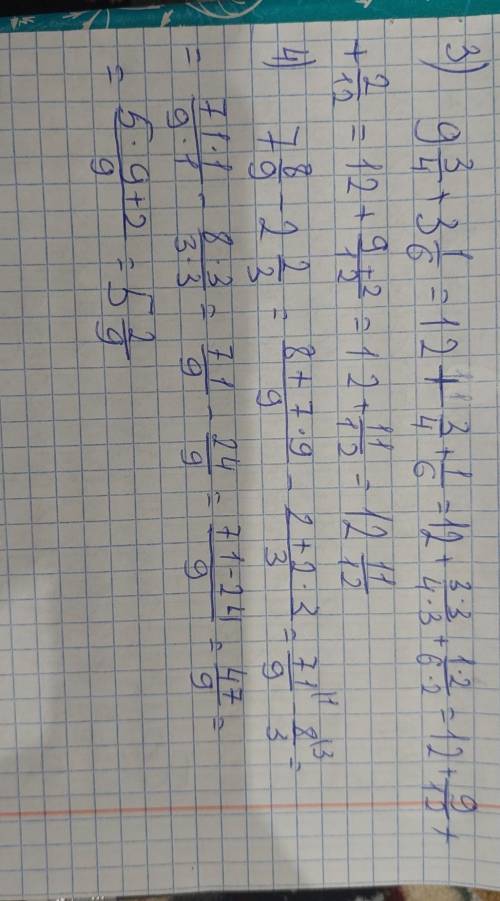 3) 9 3/4 + 3 1/6 = 12 + 3/4 + 1/6 = 12 + 3·3/4·3 + 1·2/6·2 = 12 + 9/12 +
+ 2/12 = 12 + 9+2/12 = 12 + 11/12 = 12 11/12
4) 7 8/9 - 2 2/3 = 8+7·9/9 - 2+2·3/3 = 71/9 |1 - 8/3 |3 =
= 71·1/9·1 - 8·3/3·3 = 71/9 - 24/9 = 71-24/9 = 47/9 =
= 5·9+2/9 = 5 2/9